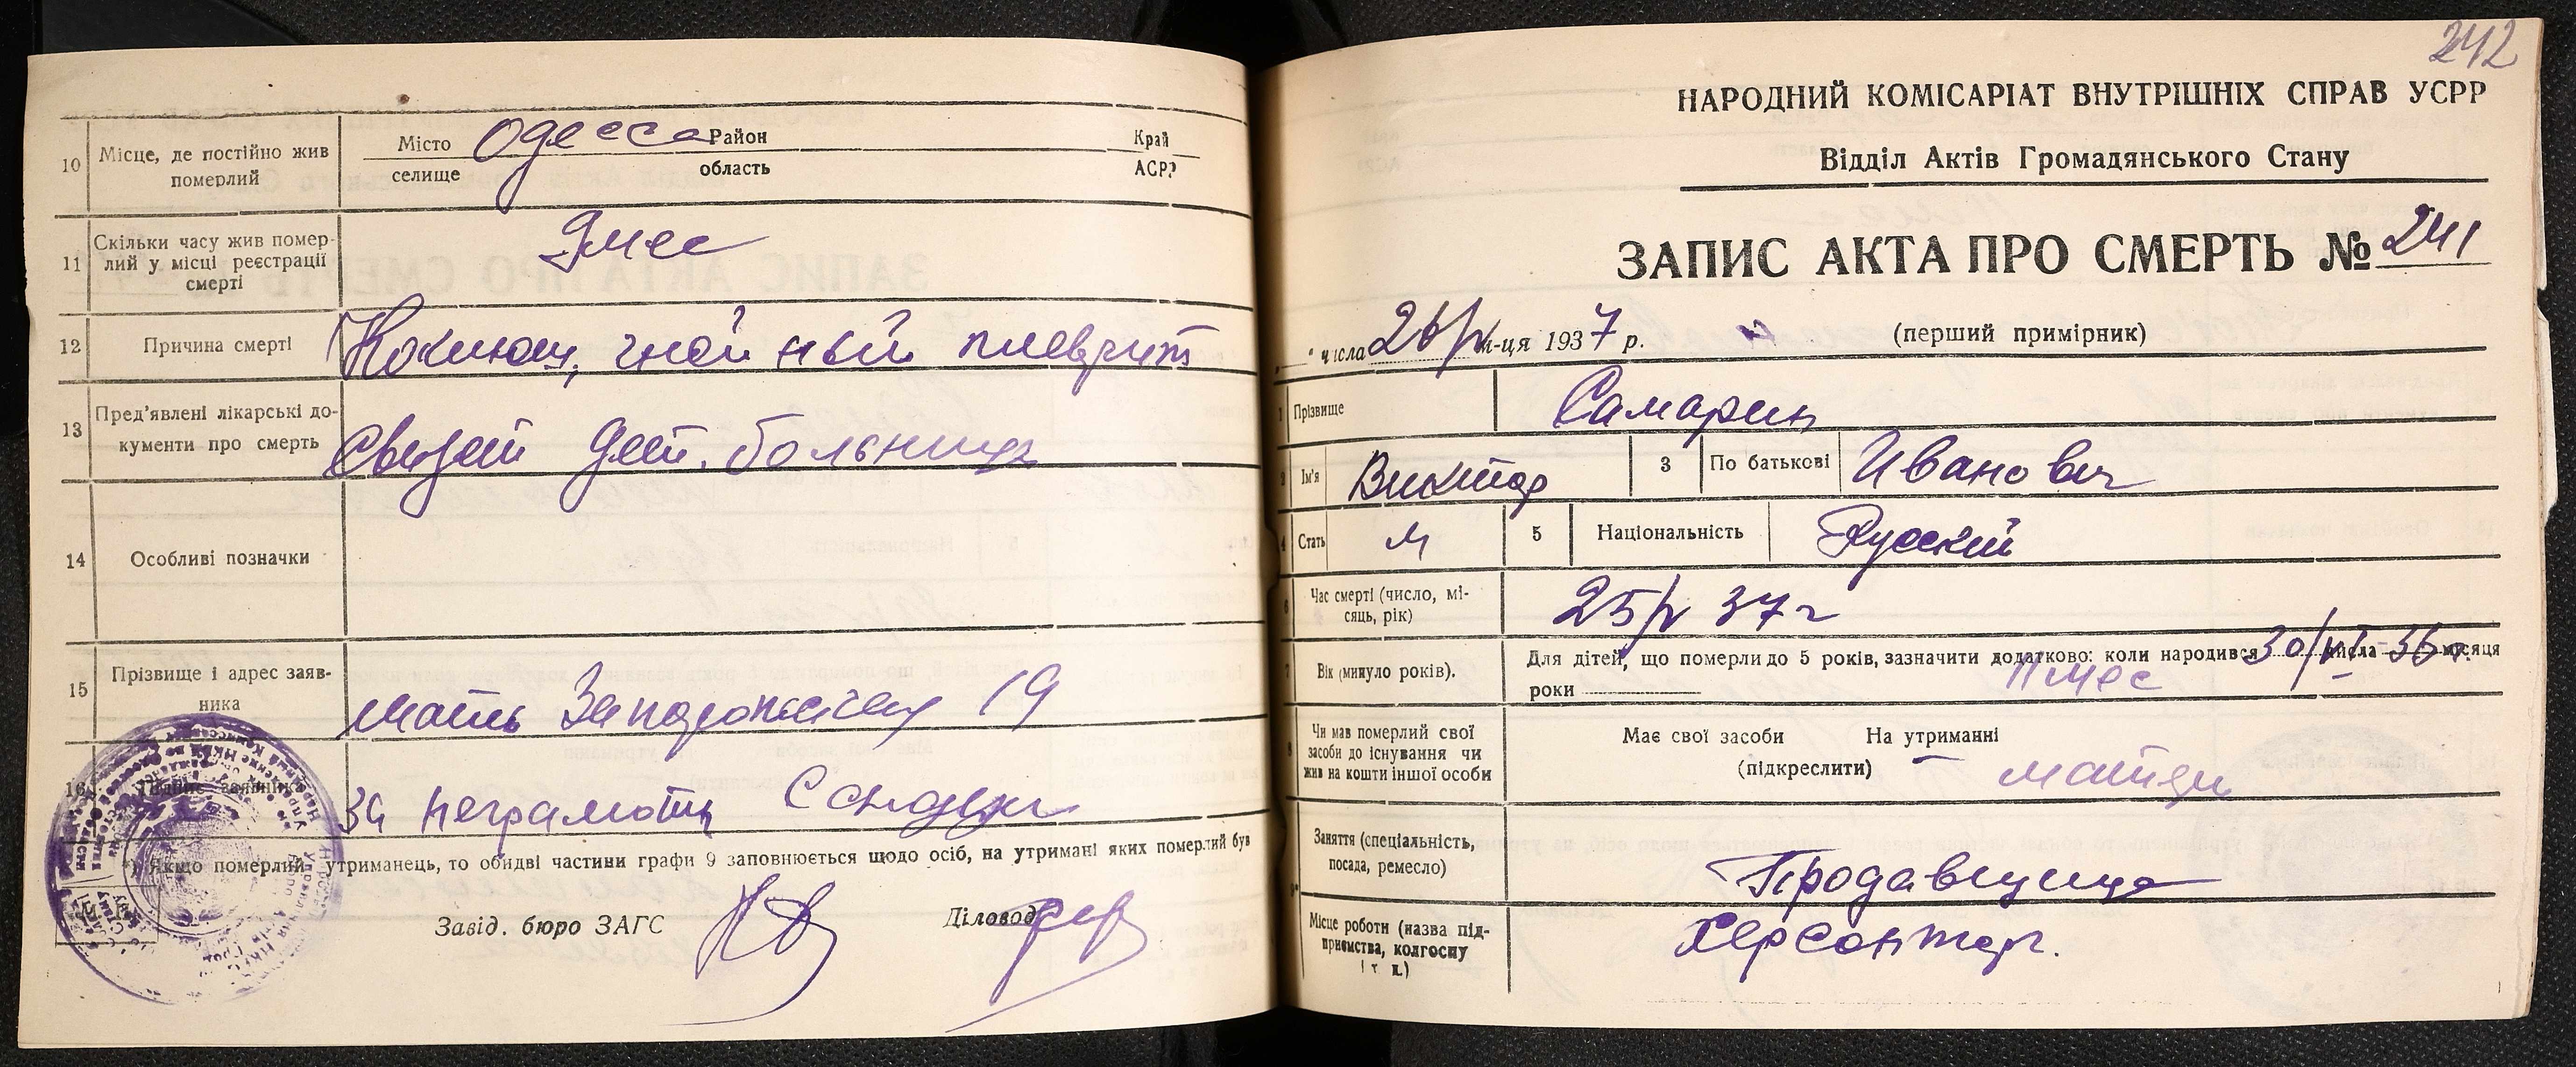 10 Місце, де постійно жив померлий
Місто Одесса Район Край
селище область АСРР
11 Скільки часу жив помер-
лий у місці реєстрації
смерті
9 мес
12 Причина смерті Коклюш, гнойный плеврит
13 Пред'явлені лікарські до-
кументи про смерть
Свидет дет. больницы
14 Особливі позначки
15 Прізвище і адрес заяв-
ника
мать 19
16 Підпис заявника
За неграмотн
*) Якщо померлий утриманець, то обидві частини графи 9 заповнюється щодо осіб, на утримані яких померлий був
Завід. бюро ЗАГС Діловод
242
НАРОДНИЙ КОМІСАРІАТ ВНУТРІШНІХ СПРАВ УСРР
Відділ Актів Громадянського Стану
ЗАПИС АКТА ПРО СМЕРТЬ № 241
" числа 26/V м-ця 1937 р. (перший примірник)
1 Прізвище Самарин
2 Ім'я Виктор 3 По батькові Иванович
4 Стать М 5 Національність Русский
6 Час смерті (число, мі-
сяць, рік)
25/V 37 г
7 Вік (минуло років).
Для дітей, що померли до 5 років, зазначити додатково: коли народився 30/VI-36 г. числа місяця
роки 11 мес
8 Чи мав померлий свої
засоби до існування чи
жив на кошти іншої особи
Має свої засоби На утриманні
(підкреслити) матери
Заняття (спеціальність,
посада, ремесло)
Продавщица
Місце роботи (назва під-
приємства, колгоспу
і т. п.)
Херсонторг.